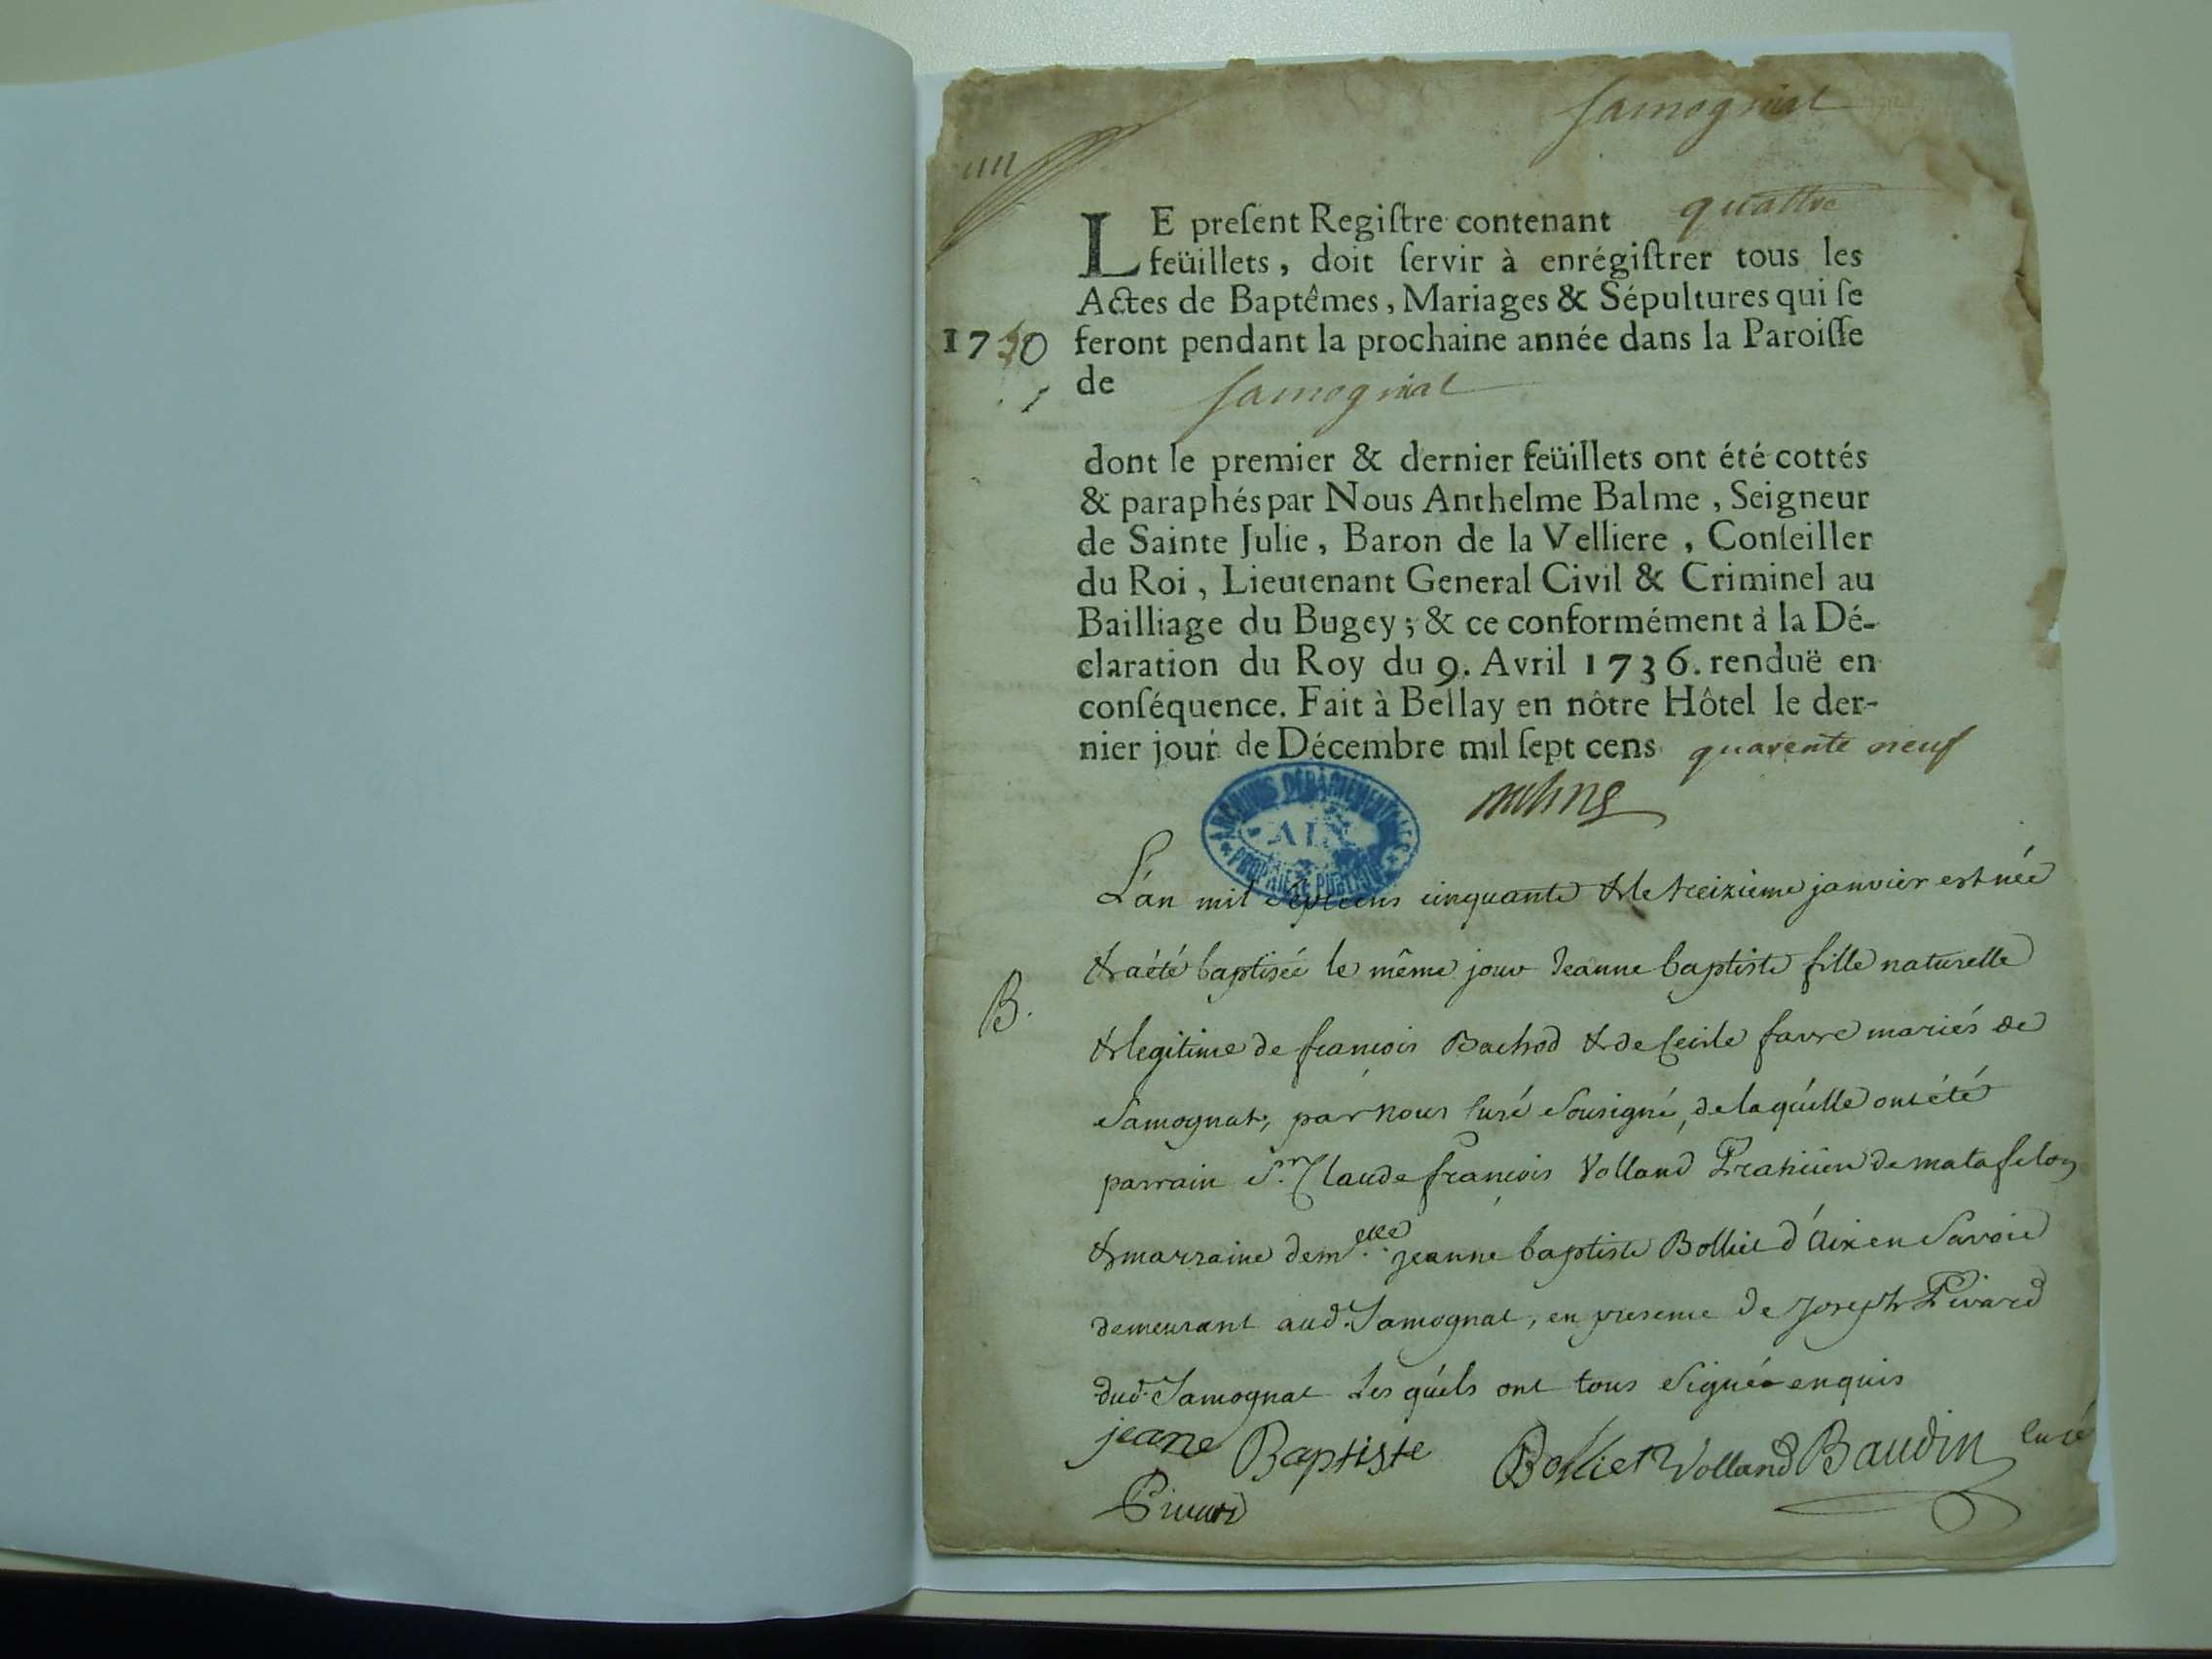 Samogniat
LE preſent Regiſtre contenant quattre
feüillets, doit ſervir à enrégiſtrer tous les
Actes de Baptêmes, Mariages & Sépultures qui ſe
1750 feront pendant la prochaine année dans la Paroiſſe
de Samogniat
dont le premier & dernier feüillets ont été cottés
& paraphés par Nous Anthelme Balme, Seigneur
de Sainte Julie, Baron de la Velliere, Conſeiller
du Roi, Lieutenant General Civil & Criminel au
Bailliage du Bugey; & ce conformément à la Dé-
claration du Roy du 9. Avril 1736. renduë en
conſéquence. Fait à Bellay en nôtre Hôtel le der-
nier jour de Décembre mil ſept cens quarente neuf
ARCHIVES DÉPARTEMENTALES
AIN
PROPRIÉTÉ PUBLIQUE
L'án mil Septcens cinquante & le treizieme janvier est née
& a été baptisée le même jour Jeanne baptiste fille naturelle
B. & legitime de francois Bachod & de Cecile favre mariés de
Samognat, par nous Curé Sousigné, de laquelle ont été
parrain Sr. Claude francois Volland Praticien de matafelon
& marraine demelle jeanne baptiste Bolliet d'Aix en Savoie
demeurant aud. Samognat, en presence de Joseph Pivard
dud. Samognat Les quels ont tous Signé enquis
jeane Baptiste Bolliet Volland Baudin Curé
Pivard